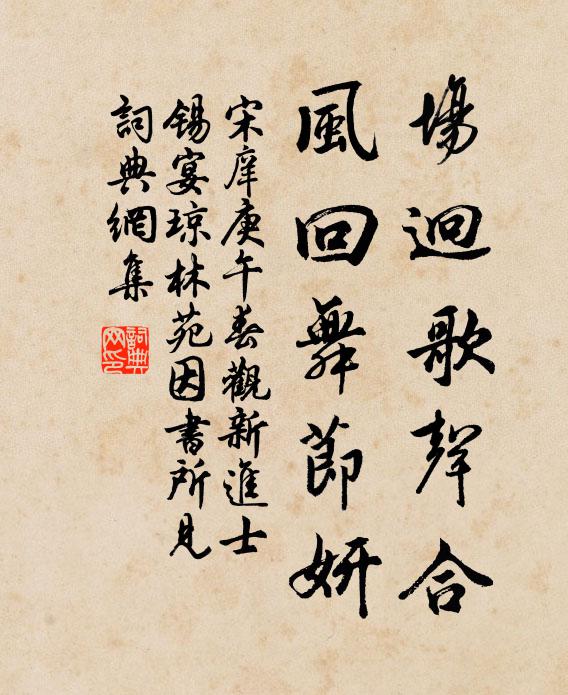 場迥歌聲合
風回舞節妍
宋庠庚午春觀新進士
錫宴琼林苑因書所見
詞典網集
詞典网印